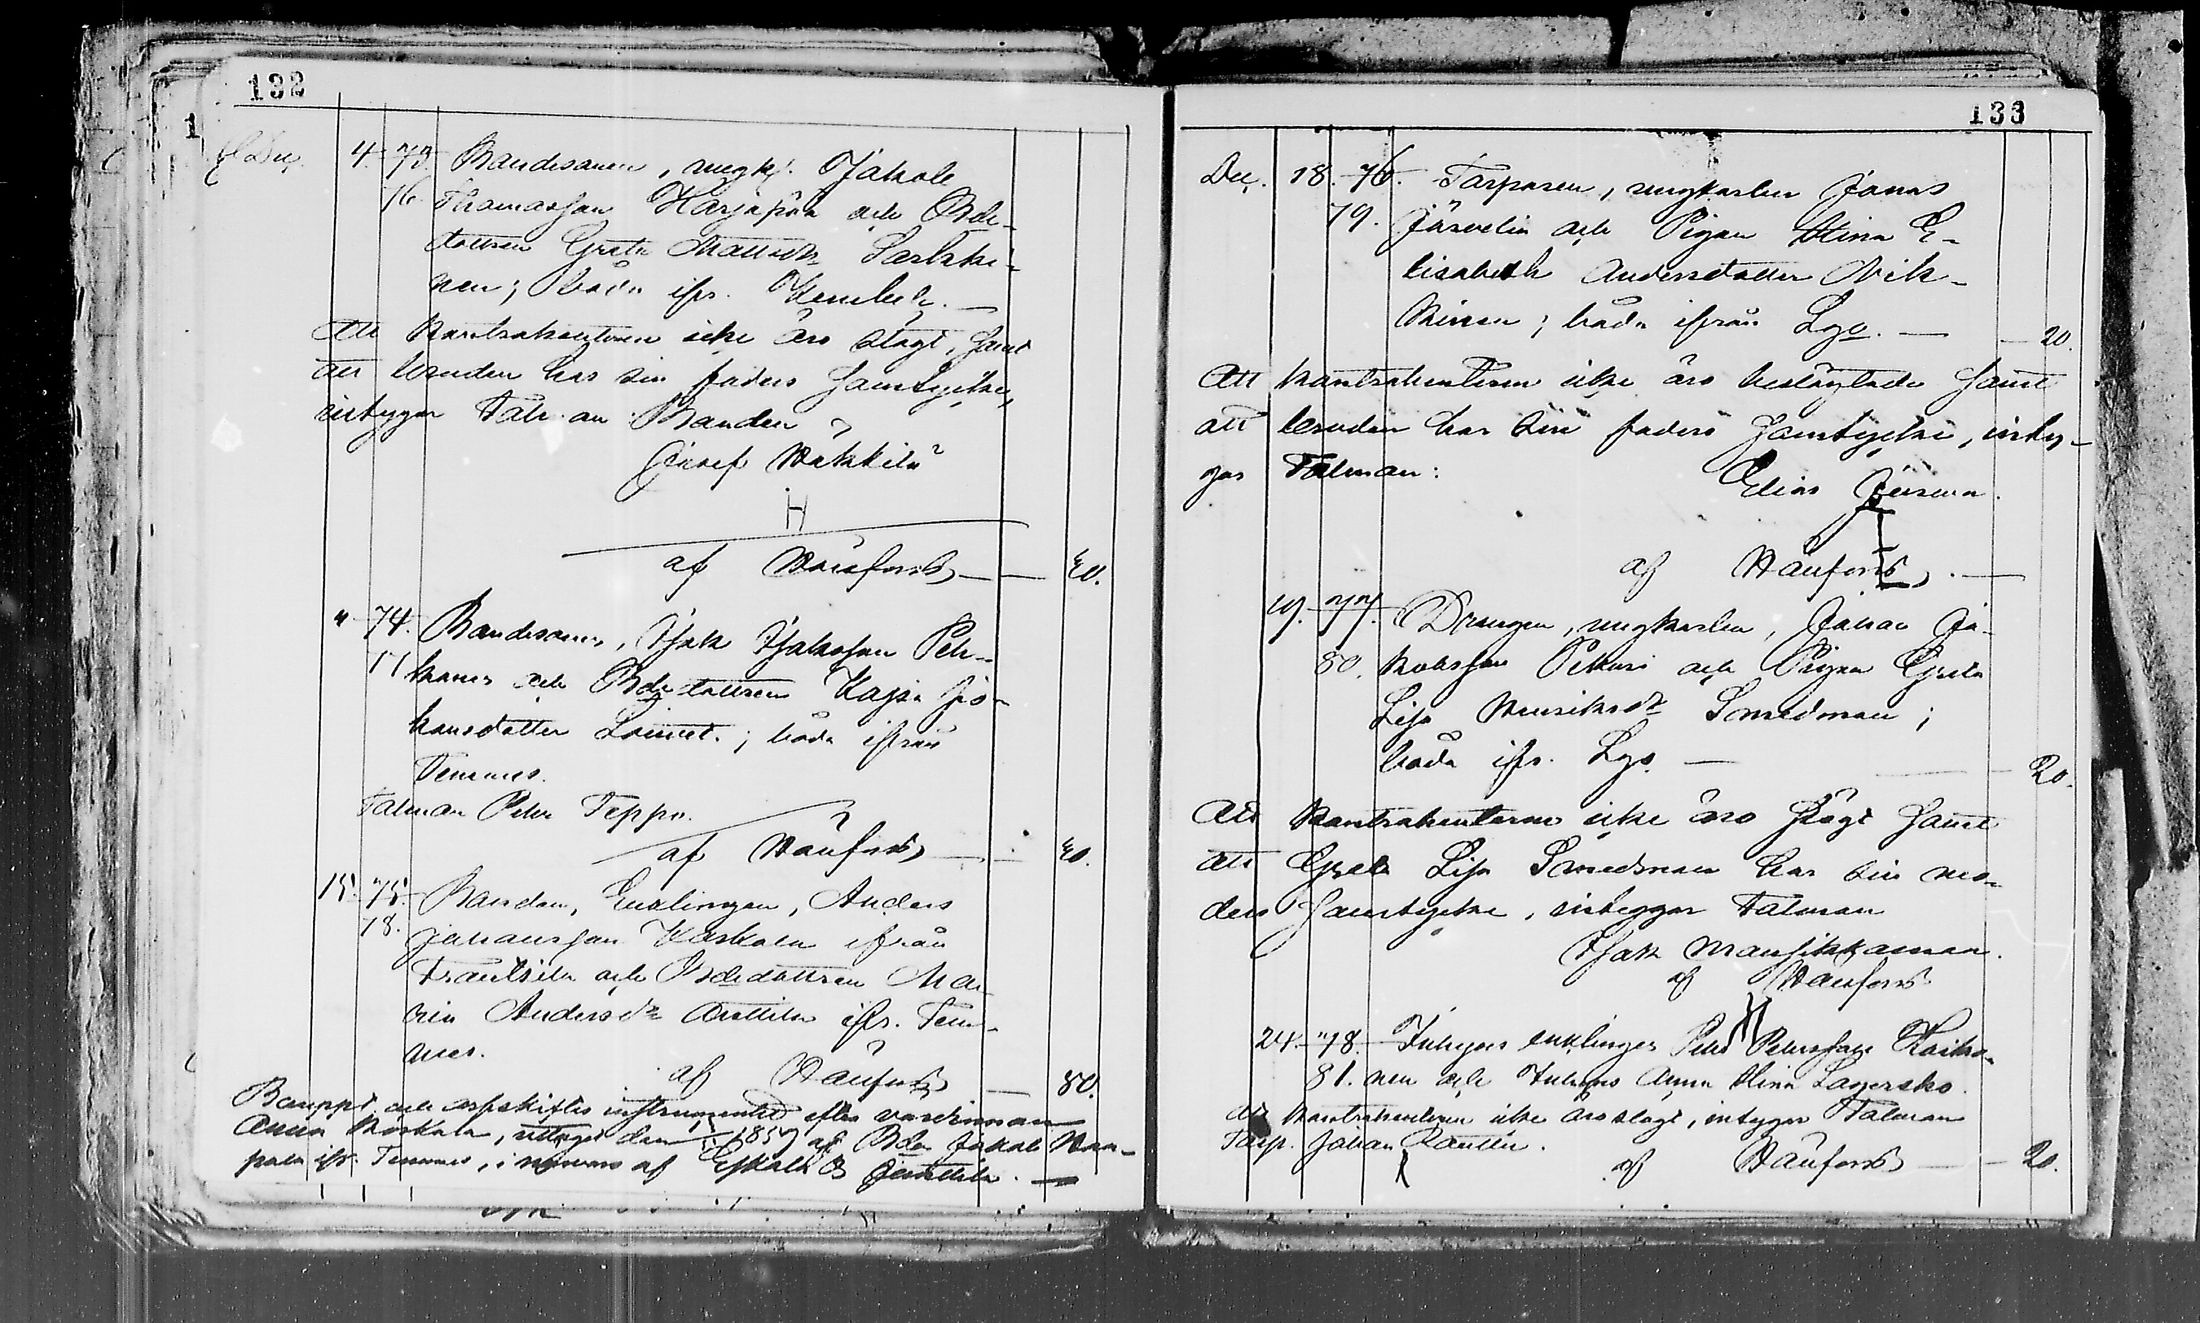 132
Dec. 4. 73. Bondesonen, ungk. Jakob
76. Thomasson Harjapää och Bde-
dottren Greta Mattsdr Sarkki-
nen; båda ifr.
Att kontrahenterne icke äro slägt, samt
att bruden har sin faders samtycke,
intygar Talm. an Bonden
Josef Wakkila
H
af Wäufors — 40.
" 74. Bondesonen, Isak Isaksson Peh-
77 konen och Bdedottren Kajsa Jo-
hansdotter ; båda ifrån
Temmes.
Talman Petter Teppo.
af Wäufors — 40.
15. 75. Bonden, Enklingen, Anders
78. Johansson Kaskela ifrån
Frantsila och Bdedottren Ma-
ria Andersdr Anttila ifr. Tem-
mes.
af Wäufors — 80.
Bouppt. och arfskiftes instrumentet efter värdinnan
Anna Koskela, 1857 af Bdn Jakob
ifr. Temmes, i af
133
Dec. 18. 76. Torparen, ungkarlen Jonas
79. Järvelin och Pigan Stina E-
lisabeth Andersdotter Nik-
kinen; båda ifrån Lgo. — 20.
Att kontrahenterne icke äro beslägtade samt
att bruden har sin faders samtycke, inty-
gar Talman:
Elias
af Wäufors. —
19. 77. Drängen, ungkarlen, Johan Ja-
80. kobsson Pekuri och Pigan Greta
Lisa Henriksdr Smedman;
båda ifr. Lgo. — 20.
Att kontrahenterne icke äro slägt samt
att Greta Lisa Smedman har sin mo-
ders samtycke, intygar Talman
Isak Mansikkamaa.
af Wäufors
24. 78. Inhyses enklingen Petter Petersson Koiko-
81. nen och Inhyses Anna Stina Lagersko.
Att kontrahenterne icke äro slägt, intygar Talman
Torp. Johan Rautio.
af Wäufors — 20.